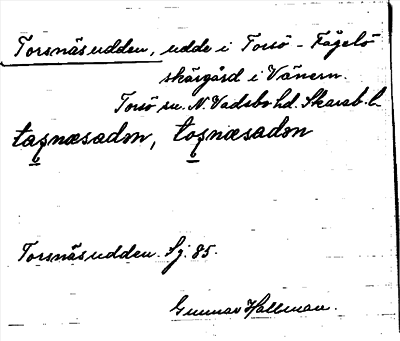 Torsnäsudden, udde i Torsö - Fågelö
skärgård i Vänern.
Torsö sn. N. Vadsbo hd. Skarab. l.
taşnæsadən, toşnæsadən
Torsnäsudden. Sj. 85.
Gunnar Hallman.